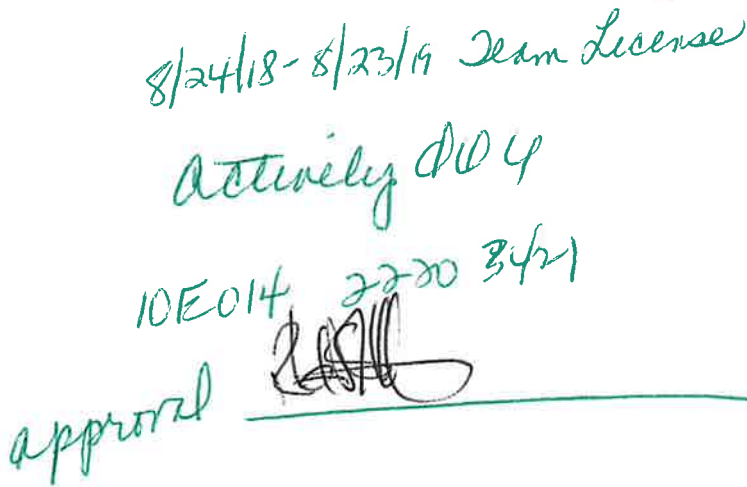 8/24/18-8/23/19 Team License
Actively
10E014 2220 3421
approval